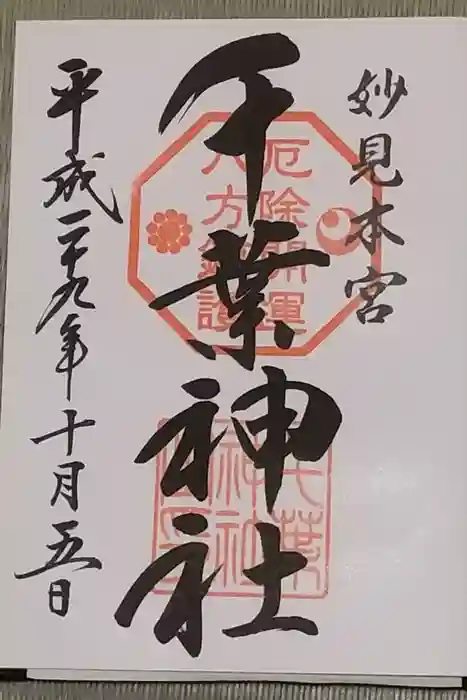 妙見本宮
千葉神社
厄除開運
八方守護
平成二十九年十月五日